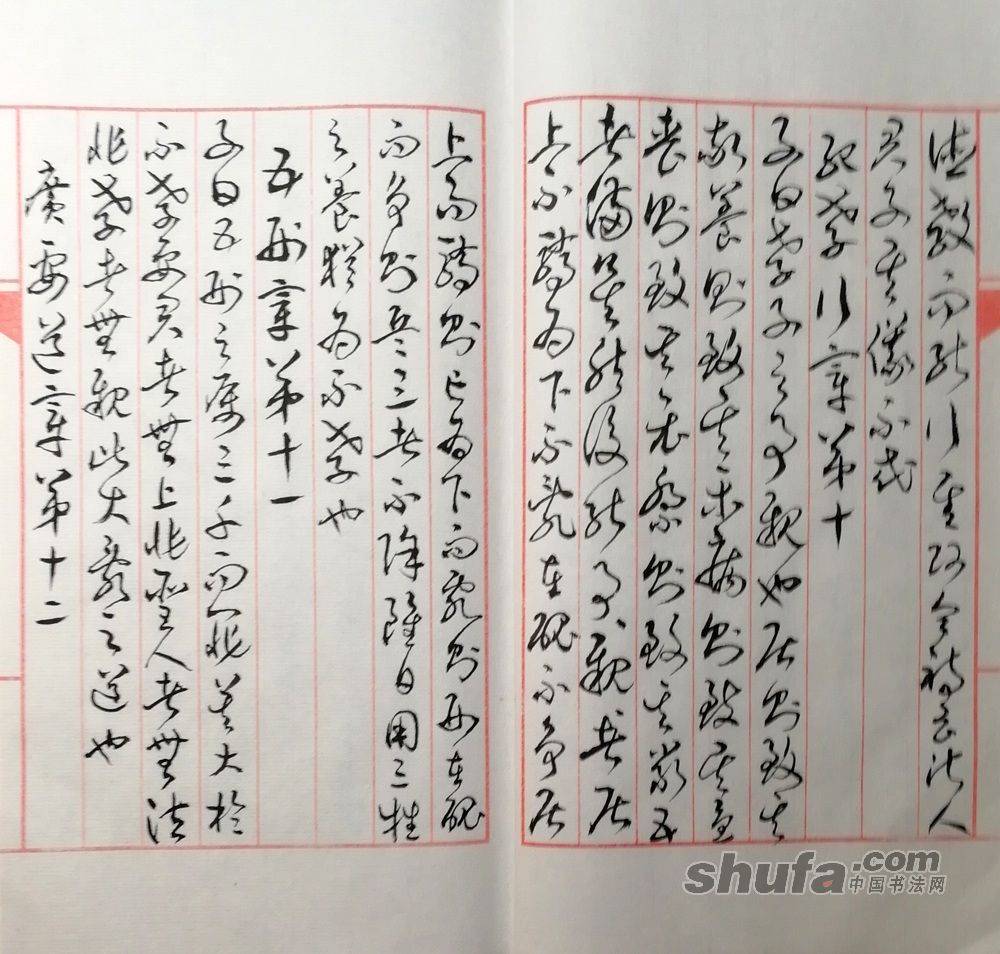 德教而能行其政令詩云淑人
君子其儀不忒
紀孝行章第十
子曰孝子之事親也居則致其
敬養則致其樂病則致其憂
喪則致其哀祭則致其嚴五
者備矣然後能事〻親〻者居
上不驕為下不亂在醜不爭居
上而驕則亡為下而亂則刑在醜
而爭則兵三者不除雖日用三牲
之養猶為不孝也
五刑章第十一
子曰五刑之屬三千而罪莫大於
不孝要君者無上非聖人者無法
非孝者無親此大亂之道也
廣要道章第十二
shufa.com
中国书法网